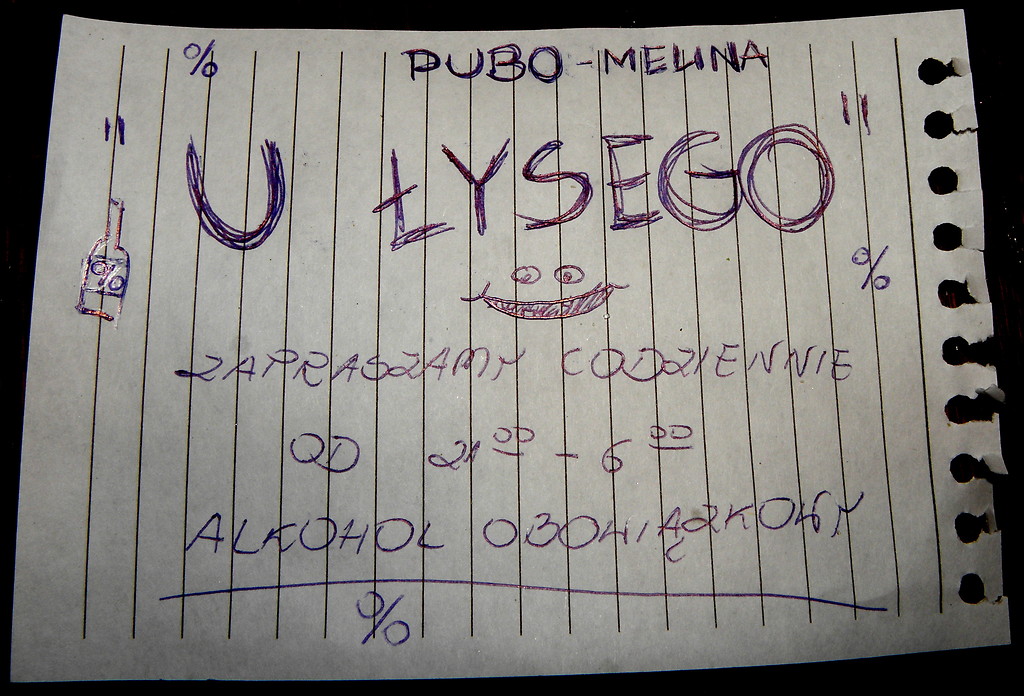 % PUBO-MELINA
"U ŁYSEGO"
%
%
ZAPRASZAMY CODZIENNIE
OD 21⁰⁰ - 6⁰⁰
ALKOHOL OBOWIĄZKOWY
%